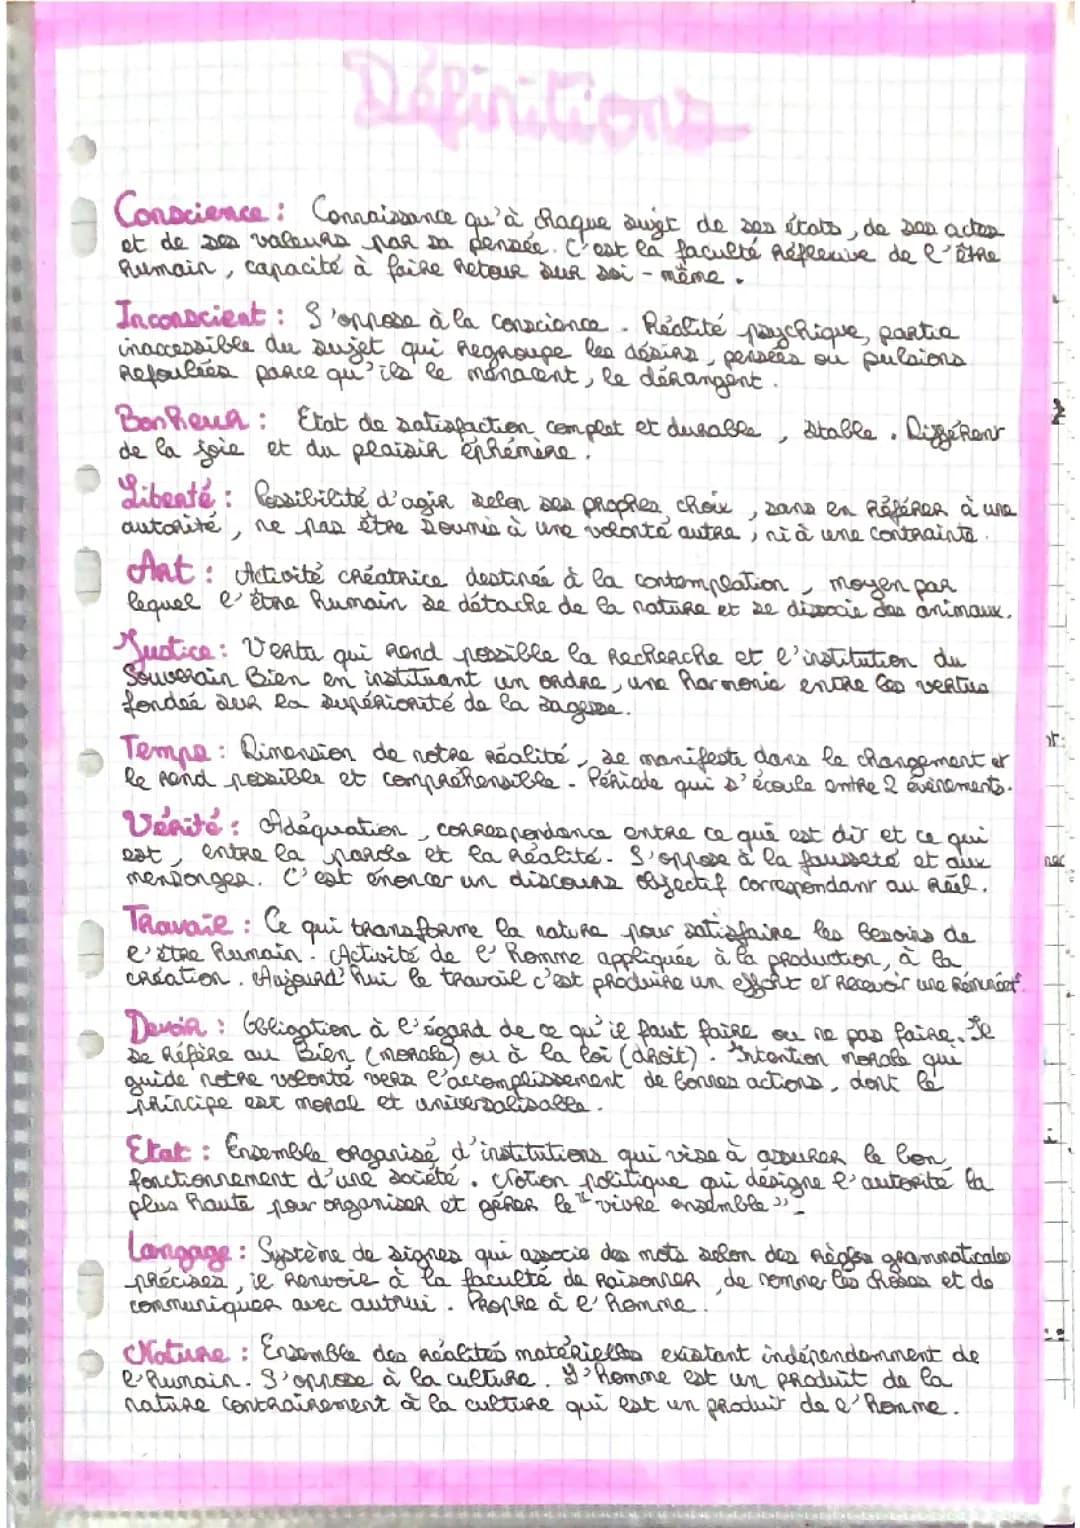 Définitions
Conscience : Connaissance qu'à chaque sujet de ses états, de ses actes
et de ses valeurs par sa pensée. C'est la faculté réflexive de l'être
humain, capacité à faire retour sur soi-même.
Inconscient : S'oppose à la conscience. Réalité psychique, partie
inaccessible du sujet qui regroupe les désirs, pensées ou pulsions
refoulées parce qu'ils le menacent, le dérangent.
Bonheur : Etat de satisfaction complet et durable, stable. Différent
de la joie et du plaisir éphémère.
Liberté : Possibilité d'agir selon ses propres choix, sans en référer à une
autorité, ne pas être soumis à une volonté autre, ni à une contrainte.
Art : Activité créatrice destinée à la contemplation, moyen par
lequel l'être humain se détache de la nature et se dissocie des animaux.
Justice : Vertu qui rend possible la recherche et l'institution du
Souverain Bien en instituant un ordre, une harmonie entre les vertus
fondée sur la supériorité de la sagesse.
Temps : Dimension de notre réalité, se manifeste dans le changement et
le rend possible et compréhensible. Période qui s'écoule entre 2 évènements.
Vérité : Adéquation, correspondance entre ce qui est dit et ce qui
est, entre la parole et la réalité. S'oppose à la fausseté et aux
mensonges. C'est énoncer un discours objectif correspondant au réel.
Travail : Ce qui transforme la nature pour satisfaire les besoins de
l'être humain. Activité de l'homme appliquée à la production, à la
création. Aujourd'hui le travail c'est produire un effort et recevoir une
Devoir : Obligation à l'égard de ce qu'il faut faire ou ne pas faire. Il
se réfère au Bien (morale) ou à la loi (droit). Intention morale qui
guide notre volonté vers l'accomplissement de bonnes actions, dont le
principe est moral et universalisable.
Etat : Ensemble organisé d'institutions qui vise à assurer le bon
fonctionnement d'une société. Notion politique qui désigne l'autorité la
plus haute pour organiser et gérer le "vivre ensemble".
Langage : Système de signes qui associe des mots selon des règles grammaticales
précises, il renvoie à la faculté de raisonner, de nommer les choses et de
communiquer avec autrui. Propre à l'homme.
Nature : Ensemble des réalités matérielles existant indépendamment de
l'humain. S'oppose à la culture. L'homme est un produit de la
nature contrairement à la culture qui est un produit de l'homme.